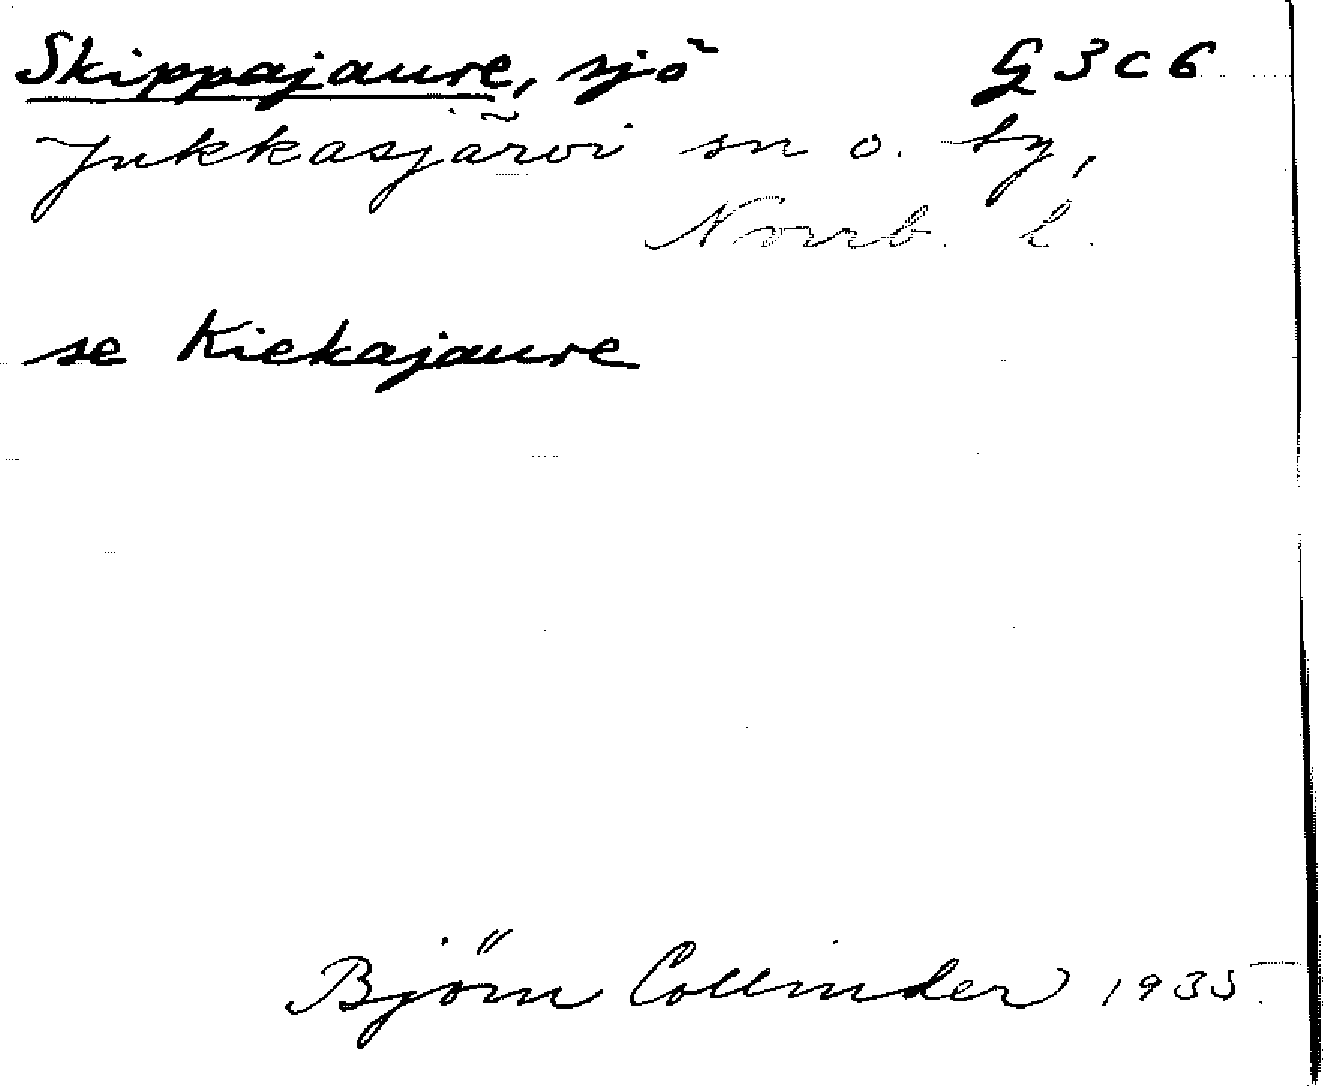 Skippajaure, sjö G 3 c 6
Jukkasjärvi sn o. by,
Norrb. l.
se Kiekajaure
Björn Collinder 1935.